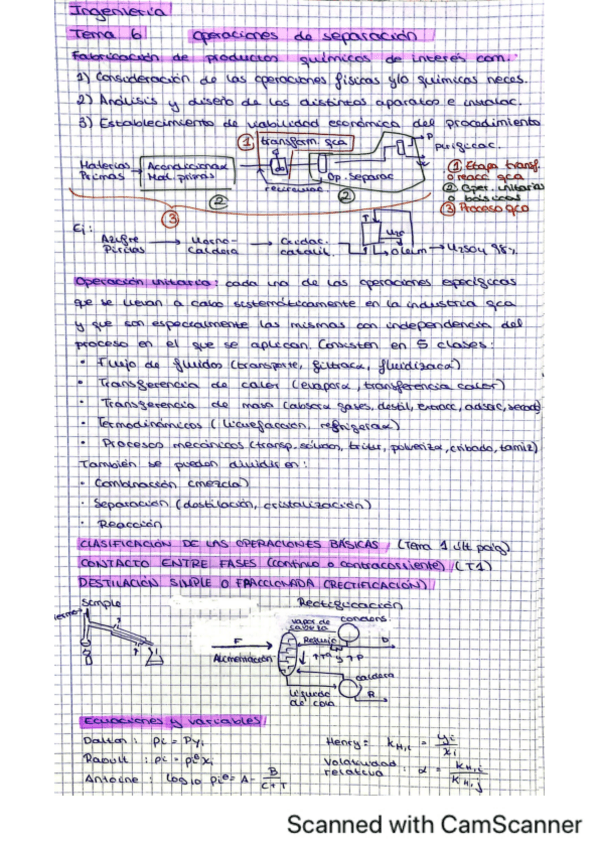 Ingeniería
Tema 6 Operaciones de separación
Fabricación de productos químicos de interés con:
1) Consideración de las operaciones físicas y/o químicas neces.
2) Análisis y diseño de los distintos aparatos e instalac.
3) Establecimiento de viabilidad económica del procedimiento
① transform. qca
P
purificac.
Materias Primas
Acondicionar Mat. primas
reaccionac.
Op. separac
② ②
① Etapa transf. o reacc qca
② Oper. unitarias o básicas
③ Proceso qco
③
Ej:
Azufre Piritas → Horno-Caldera → Oxidac. catalít. → Oleum → H2SO4 98%
H2O
Operación unitaria: cada una de las operaciones específicas
que se llevan a cabo sistemáticamente en la industria qca
y que son especialmente las mismas con independencia del
proceso en el que se aplican. Consisten en 5 clases:
• Flujo de fluidos (transporte, filtrac, fluidizac)
• Transferencia de calor (evapora, transferencia calor)
• Transferencia de masa (absorc gases, destil, extracc, adsorc, secado)
• Termodinámicos (licuefacción, refrigerac)
• Procesos mecánicos (transp. sólidos, tritur, pulveriza, cribado, tamiz)
También se pueden dividir en:
• Combinación (mezcla)
• Separación (destilación, cristalización)
• Reacción
CLASIFICACIÓN DE LAS OPERACIONES BÁSICAS (Tema 1 últ pag)
CONTACTO ENTRE FASES (continuo o contracorriente) (T1)
DESTILACIÓN SIMPLE O FRACCIONADA (RECTIFICACIÓN)
Simple Rectificación
vapor de cabeza
condens.
Reflujo
D
F
Alimentación
↑Tª y ↑P
caldera
líquido de cola
R
Ecuaciones y variables
Dalton: pi = Pyi
Henry: kH,i = yi/xi
Raoult: pi = pi⁰xi
Volatilidad relativa: α = kH,i/kH,j
Antoine: log10 pi⁰ = A - B/(C+T)
Scanned with CamScanner